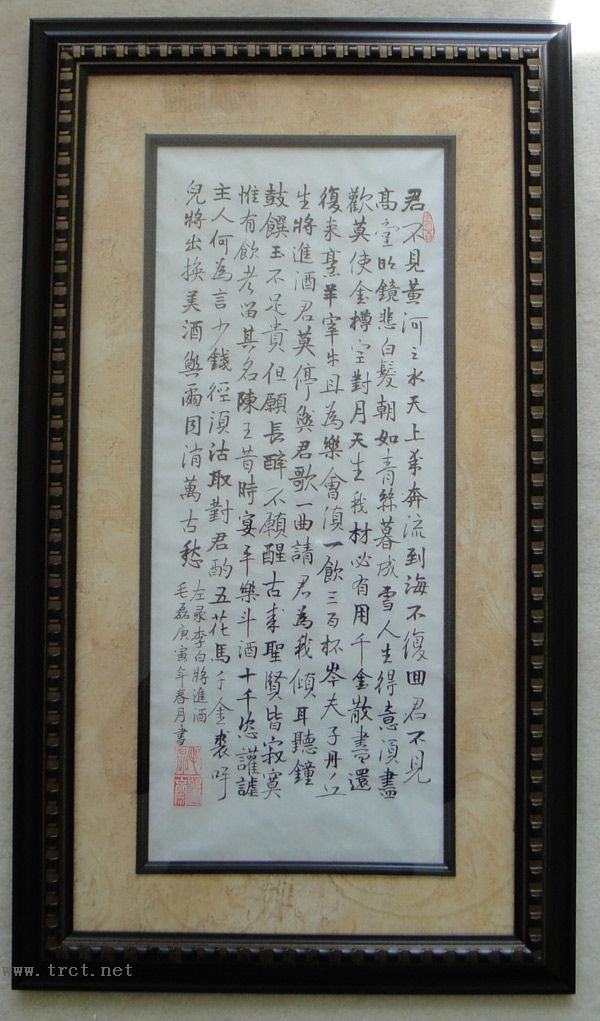 君不見黃河之水天上來奔流到海不復回君不見
高堂明鏡悲白髮朝如青絲暮成雪人生得意須盡
歡莫使金樽空對月天生我材必有用千金散盡還
復來烹羊宰牛且為樂會須一飲三百杯岑夫子丹丘
生將進酒君莫停與君歌一曲請君為我傾耳聽鐘
鼓饌玉不足貴但願長醉不願醒古來聖賢皆寂寞
惟有飲者留其名陳王昔時宴平樂斗酒十千恣讙謔
主人何為言少錢徑須沽取對君酌五花馬千金裘呼
兒將出換美酒與爾同消萬古愁
左录李白將進酒
毛磊庚寅年春月書
www.trct.net